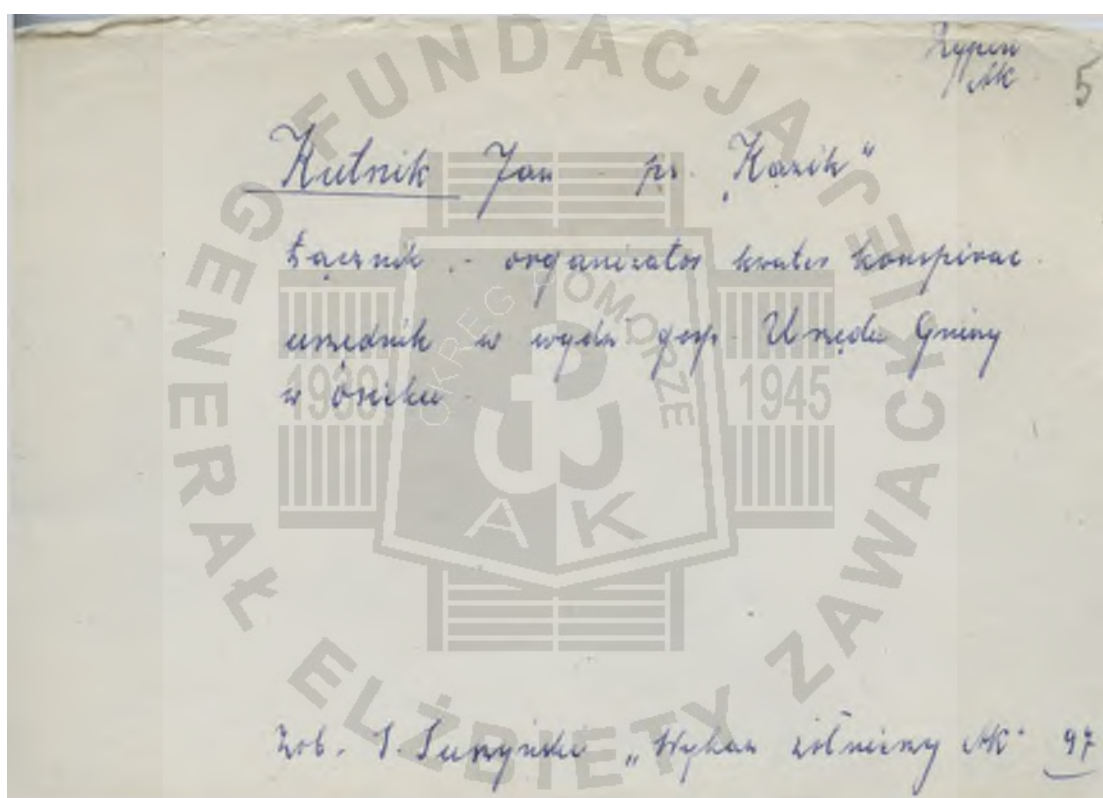 AK 5
Kutnik Jan ps. "Kazik"
Łącznik - organizator kwater konspirac.
urzędnik w wydz. gosp. Urzędu Gminy
w Osieku.
Zob. "Wykaz żołnierzy AK" 97
FUNDACJA
GENERAŁ ELŻBIETY ZAWACKIEJ
OKRĘG POMORZE
1939 1945
AK